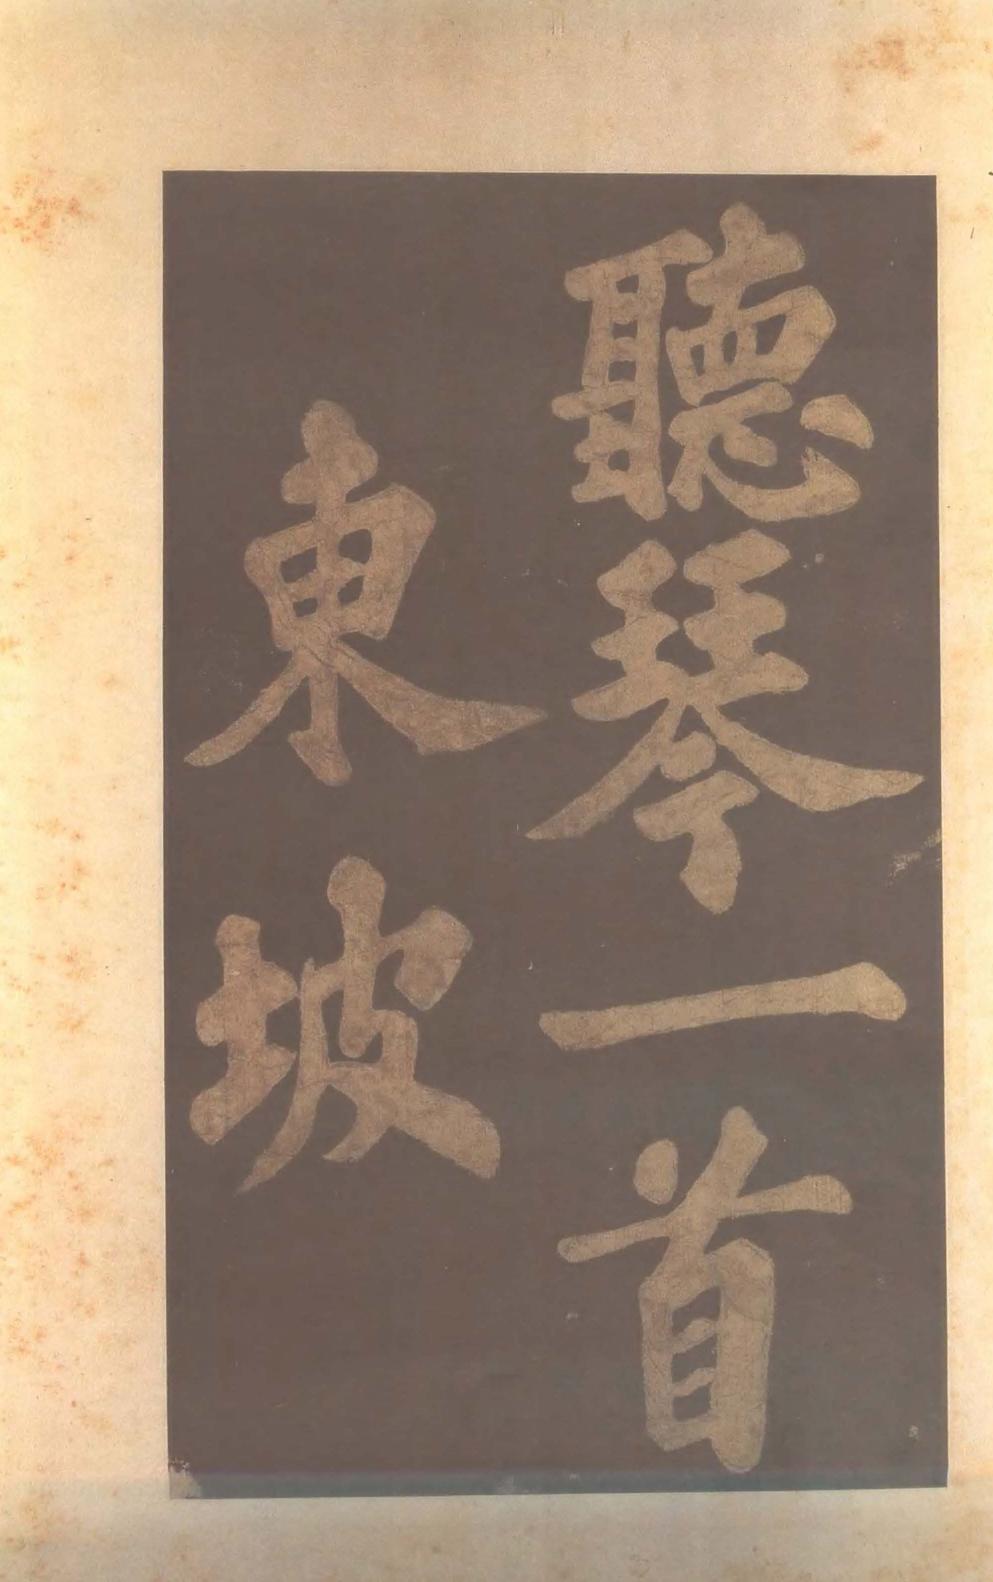 聽琴一首
東坡